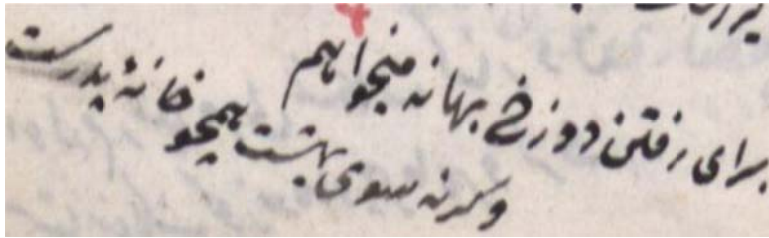 برای رفتن دوزخ بهانه میخواهم
وگرنه سوی بهشت همچو خانهٔ پدرست